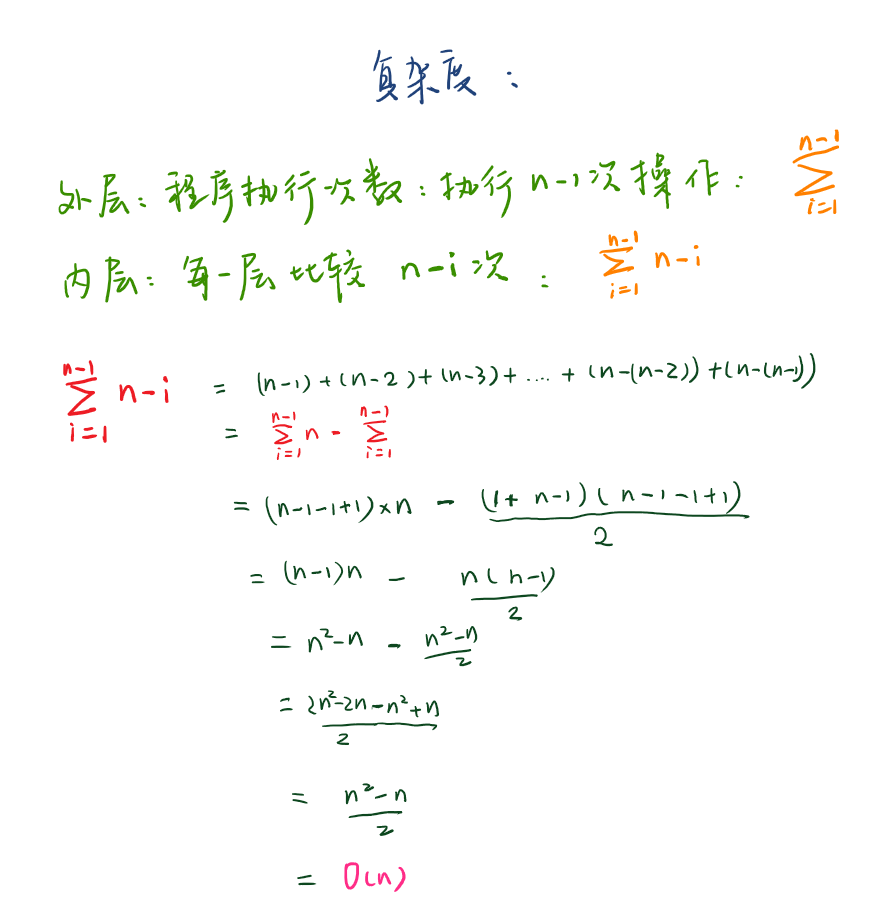 复杂度：
外层：程序执行次数：执行 n-1次操作： \sum_{i=1}^{n-1}
内层：每一层比较 n-i次 ： \sum_{i=1}^{n-1} n-i
\sum_{i=1}^{n-1} n-i = (n-1)+(n-2)+(n-3)+....+(n-(n-2))+(n-(n-1))
= \sum_{i=1}^{n-1} n - \sum_{i=1}^{n-1}
= (n-1-1+1)×n - \frac{(1+n-1)(n-1-1+1)}{2}
= (n-1)n - \frac{n(n-1)}{2}
= n²-n - \frac{n²-n}{2}
= \frac{2n²-2n-n²+n}{2}
= \frac{n²-n}{2}
= O(n)